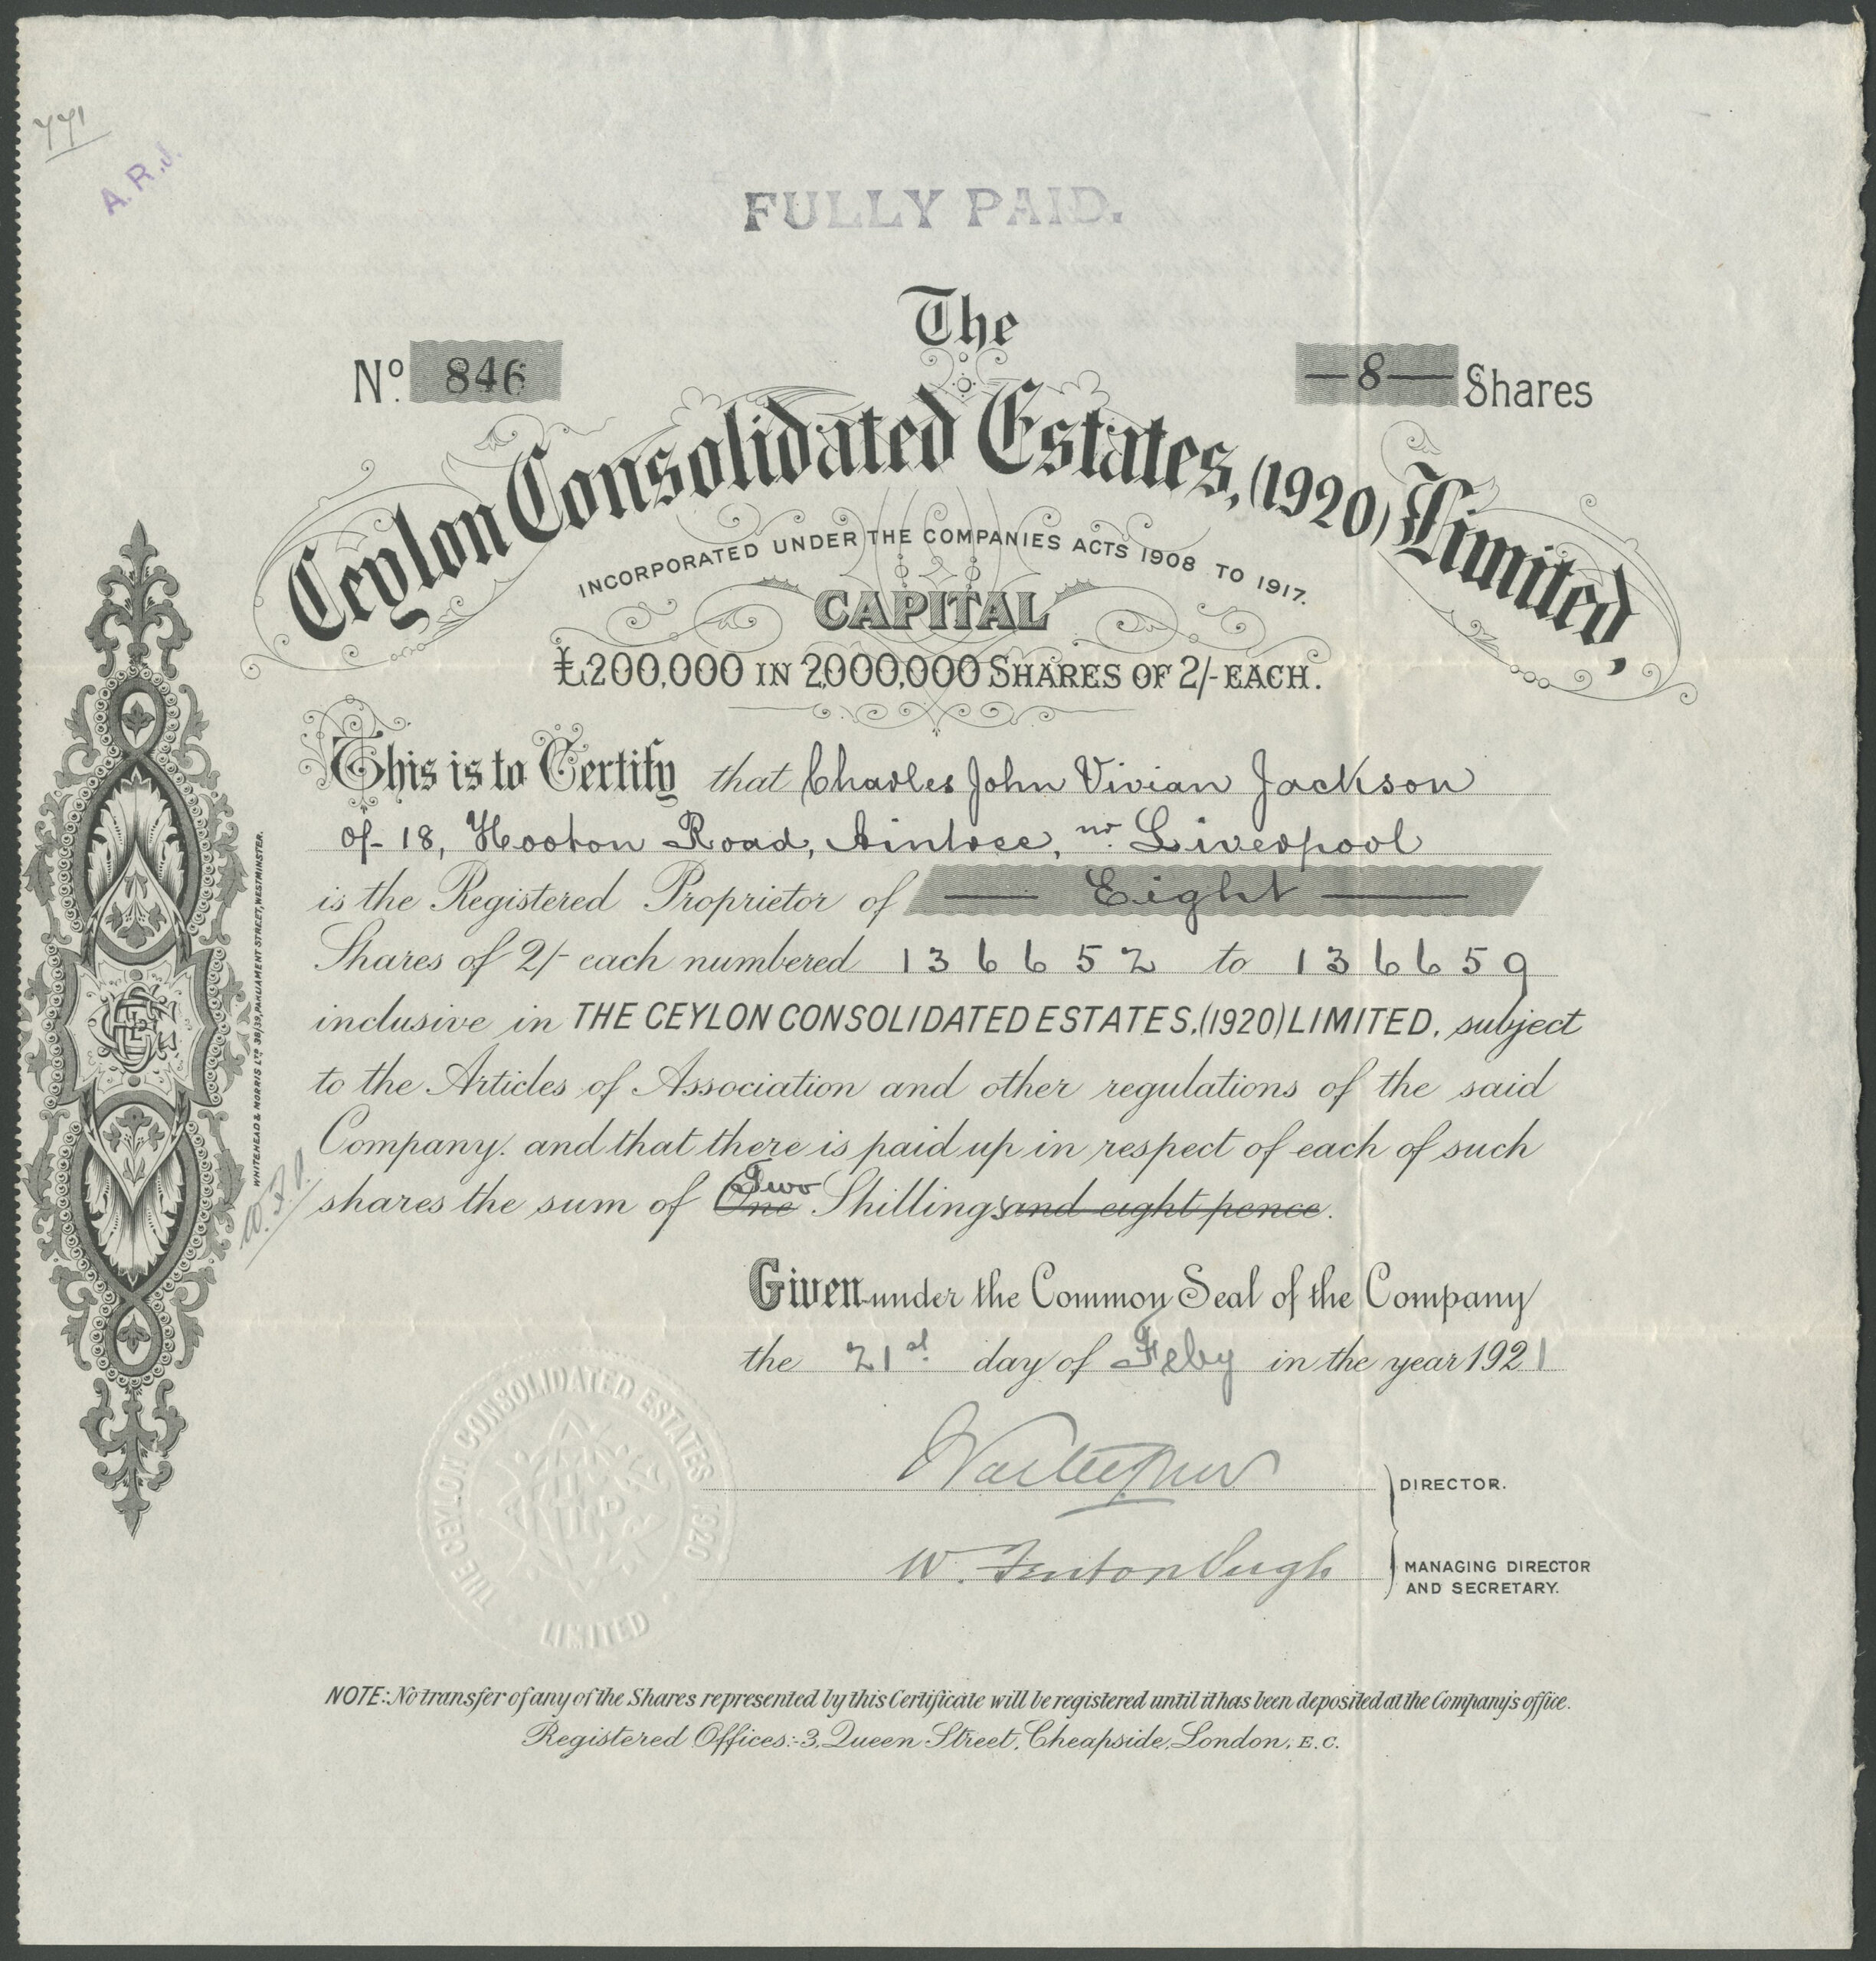 771
A.R.J.
FULLY PAID.
The
No. 846
—8— Shares
Ceylon Consolidated Estates, (1920) Limited,
INCORPORATED UNDER THE COMPANIES ACTS 1908 TO 1917.
CAPITAL
£200,000 IN 2,000,000 SHARES OF 2/- EACH.
This is to Certify that Charles John Vivian Jackson
of 18, Hooton Road, Aintree, nr. Liverpool
is the Registered Proprietor of — Eight —
Shares of 2/- each numbered 136652 to 136659
inclusive in THE CEYLON CONSOLIDATED ESTATES, (1920) LIMITED, subject
to the Articles of Association and other regulations of the said
Company. and that there is paid up in respect of each of such
Two
shares the sum of One Shillings and eight pence.
Given under the Common Seal of the Company
the 21st day of Feby in the year 1921
DIRECTOR.
W. Fenton Pugh
MANAGING DIRECTOR
AND SECRETARY.
THE CEYLON CONSOLIDATED ESTATES 1920
LIMITED
NOTE: No transfer of any of the Shares represented by this Certificate will be registered until it has been deposited at the Company's office.
Registered Offices:-3, Queen Street, Cheapside, London, E.C.
WHITEHEAD & MORRIS LTD 38/39, PARLIAMENT STREET, WESTMINSTER.